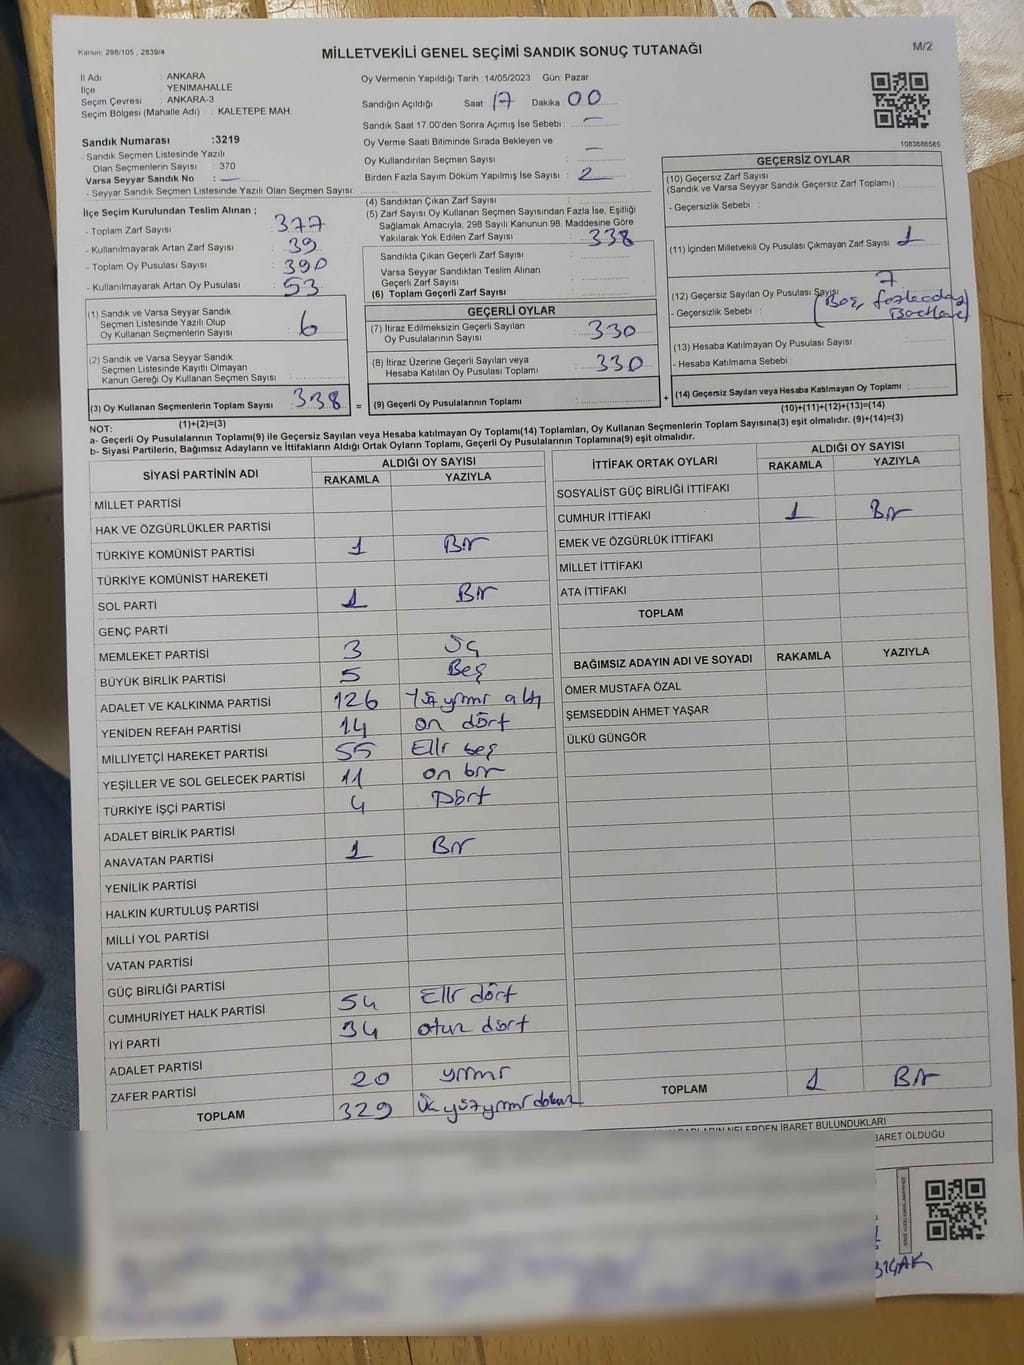 Kanun: 298/105 , 2839/4
MİLLETVEKİLİ GENEL SEÇİMİ SANDIK SONUÇ TUTANAĞI
M/2
İl Adı : ANKARA
İlçe : YENİMAHALLE
Seçim Çevresi : ANKARA-3
Seçim Bölgesi (Mahalle Adı) : KALETEPE MAH.
Oy Vermenin Yapıldığı Tarih : 14/05/2023 Gün: Pazar
Sandığın Açıldığı Saat: 17 Dakika 00
Sandık Saat 17:00'den Sonra Açımış İse Sebebi : —
Oy Verme Saati Bitiminde Sırada Bekleyen ve
Oy Kullandırılan Seçmen Sayısı : —
Birden Fazla Sayım Döküm Yapılmış İse Sayısı : 2
1083686565
Sandık Numarası :3219
- Sandık Seçmen Listesinde Yazılı
Olan Seçmenlerin Sayısı : 370
Varsa Seyyar Sandık No : —
- Seyyar Sandık Seçmen Listesinde Yazılı Olan Seçmen Sayısı :
İlçe Seçim Kurulundan Teslim Alınan ;
- Toplam Zarf Sayısı : 377
- Kullanılmayarak Artan Zarf Sayısı : 39
- Toplam Oy Pusulası Sayısı : 390
- Kullanılmayarak Artan Oy Pusulası : 53
(1) Sandık ve Varsa Seyyar Sandık
Seçmen Listesinde Yazılı Olup
Oy Kullanan Seçmenlerin Sayısı : 6
(2) Sandık ve Varsa Seyyar Sandık
Seçmen Listesinde Kayıtlı Olmayan
Kanun Gereği Oy Kullanan Seçmen Sayısı :
(3) Oy Kullanan Seçmenlerin Toplam Sayısı : 338
(1)+(2)=(3)
(4) Sandıktan Çıkan Zarf Sayısı :
(5) Zarf Sayısı Oy Kullanan Seçmen Sayısından Fazla İse, Eşitliği
Sağlamak Amacıyla; 298 Sayılı Kanunun 98. Maddesine Göre
Yakılarak Yok Edilen Zarf Sayısı : 338
Sandıkta Çıkan Geçerli Zarf Sayısı :
Varsa Seyyar Sandıktan Teslim Alınan
Geçerli Zarf Sayısı :
(6) Toplam Geçerli Zarf Sayısı :
GEÇERLİ OYLAR
(7) İtiraz Edilmeksizin Geçerli Sayılan
Oy Pusulalarının Sayısı : 330
(8) İtiraz Üzerine Geçerli Sayılan veya
Hesaba Katılan Oy Pusulası Toplamı : 330
= (9) Geçerli Oy Pusulalarının Toplamı :
GEÇERSİZ OYLAR
(10) Geçersiz Zarf Sayısı
(Sandık ve Varsa Seyyar Sandık Geçersiz Zarf Toplamı) :
- Geçersizlik Sebebi :
(11) İçinden Milletvekili Oy Pusulası Çıkmayan Zarf Sayısı : 1
(12) Geçersiz Sayılan Oy Pusulası Sayısı : 7
- Geçersizlik Sebebi : (Boş,
(13) Hesaba Katılmayan Oy Pusulası Sayısı :
- Hesaba Katılmama Sebebi :
+ (14) Geçersiz Sayılan veya Hesaba Katılmayan Oy Toplamı :
(10)+(11)+(12)+(13)=(14)
NOT:
a- Geçerli Oy Pusulalarının Toplamı(9) ile Geçersiz Sayılan veya Hesaba katılmayan Oy Toplamı(14) Toplamları, Oy Kullanan Seçmenlerin Toplam Sayısına(3) eşit olmalıdır. (9)+(14)=(3)
b- Siyasi Partilerin, Bağımsız Adayların ve İttifakların Aldığı Ortak Oyların Toplamı, Geçerli Oy Pusulalarının Toplamına(9) eşit olmalıdır.
SİYASİ PARTİNİN ADI
ALDIĞI OY SAYISI
RAKAMLA YAZIYLA
MİLLET PARTİSİ
HAK VE ÖZGÜRLÜKLER PARTİSİ
TÜRKİYE KOMÜNİST PARTİSİ 1 Bir
TÜRKİYE KOMÜNİST HAREKETİ
SOL PARTİ 1 Bir
GENÇ PARTİ
MEMLEKET PARTİSİ 3 Üç
BÜYÜK BİRLİK PARTİSİ 5 Beş
ADALET VE KALKINMA PARTİSİ 126 Yüz yirmi altı
YENİDEN REFAH PARTİSİ 14 on dört
MİLLİYETÇİ HAREKET PARTİSİ 55 Elli beş
YEŞİLLER VE SOL GELECEK PARTİSİ 11 on bir
TÜRKİYE İŞÇİ PARTİSİ 4 Dört
ADALET BİRLİK PARTİSİ
ANAVATAN PARTİSİ 1 Bir
YENİLİK PARTİSİ
HALKIN KURTULUŞ PARTİSİ
MİLLİ YOL PARTİSİ
VATAN PARTİSİ
GÜÇ BİRLİĞİ PARTİSİ
CUMHURİYET HALK PARTİSİ 54 Elli dört
İYİ PARTİ 34 otuz dört
ADALET PARTİSİ
ZAFER PARTİSİ 20 yirmi
TOPLAM 329 Üç yüz yirmi dokuz
İTTİFAK ORTAK OYLARI
ALDIĞI OY SAYISI
RAKAMLA YAZIYLA
SOSYALİST GÜÇ BİRLİĞİ İTTİFAKI
CUMHUR İTTİFAKI 1 Bir
EMEK VE ÖZGÜRLÜK İTTİFAKI
MİLLET İTTİFAKI
ATA İTTİFAKI
TOPLAM
BAĞIMSIZ ADAYIN ADI VE SOYADI RAKAMLA YAZIYLA
ÖMER MUSTAFA ÖZAL
ŞEMSEDDİN AHMET YAŞAR
ÜLKÜ GÜNGÖR
TOPLAM 1 Bir
NELERDEN İBARET BULUNDUKLARI
BARET OLDUĞU